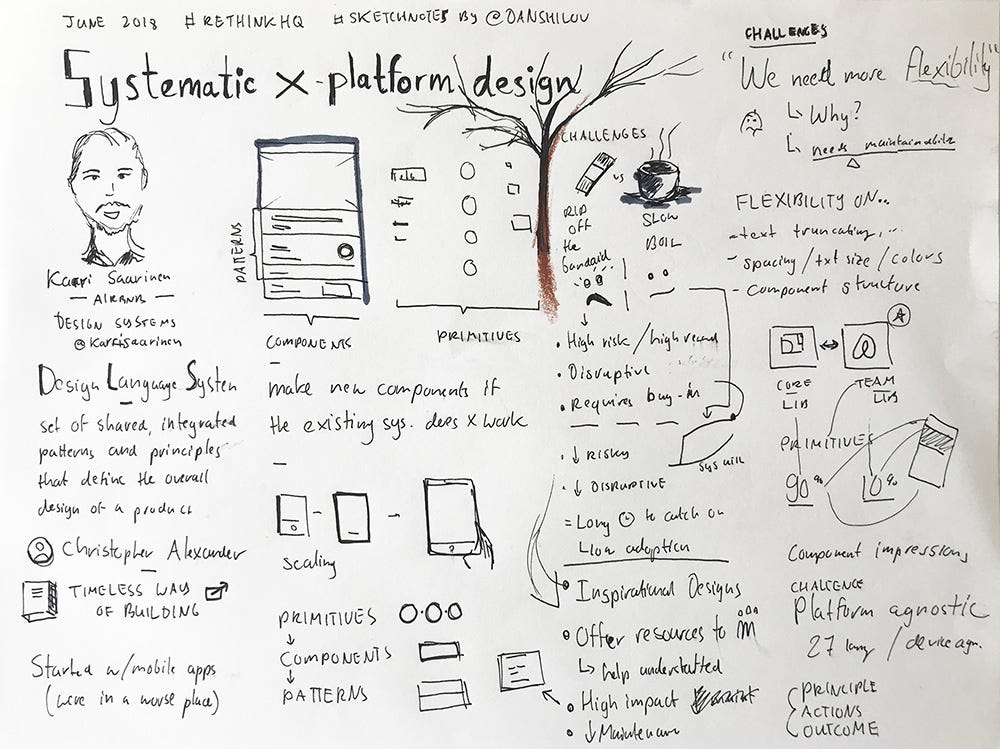 JUNE 2018 #RETHINKHQ #SKETCHNOTES BY @DANSHILOV
Systematic x-platform design
Karri Saarinen
— AIRBNB —
DESIGN SYSTEMS
@karrisaarinen
Design Language System
set of shared, integrated
patterns and principles
that define the overall
design of a product
Christopher Alexander
TIMELESS WAY
OF BUILDING
Started w/mobile apps
(were in a worse place)
PATTERNS
COMPONENTS
PRIMITIVES
make new components if
the existing sys. does x work
scaling
PRIMITIVES
↓
COMPONENTS
↓
PATTERNS
CHALLENGES
vs
RIP
OFF
the
bandaid
SLOW
BOIL
• High risk / high reward
• Disruptive
• Requires buy-in
• ↓ RISKY
• ↓ DISRUPTIVE
= Long to catch on
Low adoption
sys will
• Inspirational Designs
• Offer resources to
↳ help understaffed
• High impact
• ↓ Maintenance
CHALLENGES
"We need more flexibility"
↳ Why?
↳ needs maintainable
FLEXIBILITY ON..
- text truncating,...
- spacing / txt size / colors
- component structure
A
CORE
LIB
TEAM
LIB
PRIMITIVES
90%
10%
Component impressions
CHALLENGE
Platform agnostic
27 lang / device agn.
PRINCIPLE
ACTIONS
OUTCOME